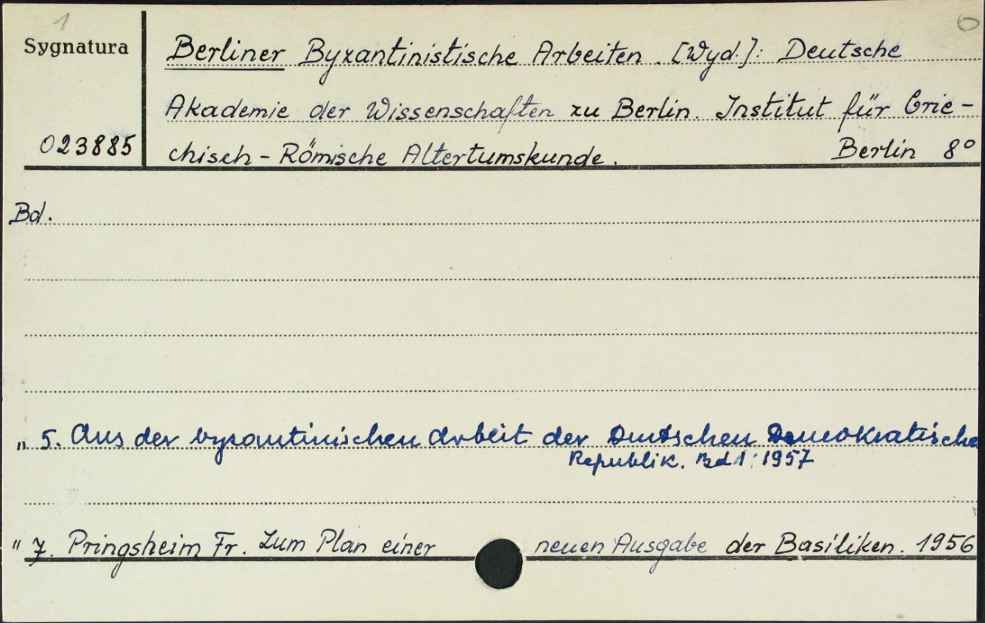 1
6
Sygnatura
023885
Berliner Byzantinistische Arbeiten. [Wyd.]: Deutsche
Akademie der Wissenschaften zu Berlin. Institut für Grie-
chisch-Römische Altertumskunde. Berlin 8°
Bd.
" 5. Aus der byzantinischen Arbeit der Deutschen Demokratische
Republik. Bd 1: 1957
" 7. Pringsheim Fr. Zum Plan einer neuen Ausgabe der Basiliken. 1956